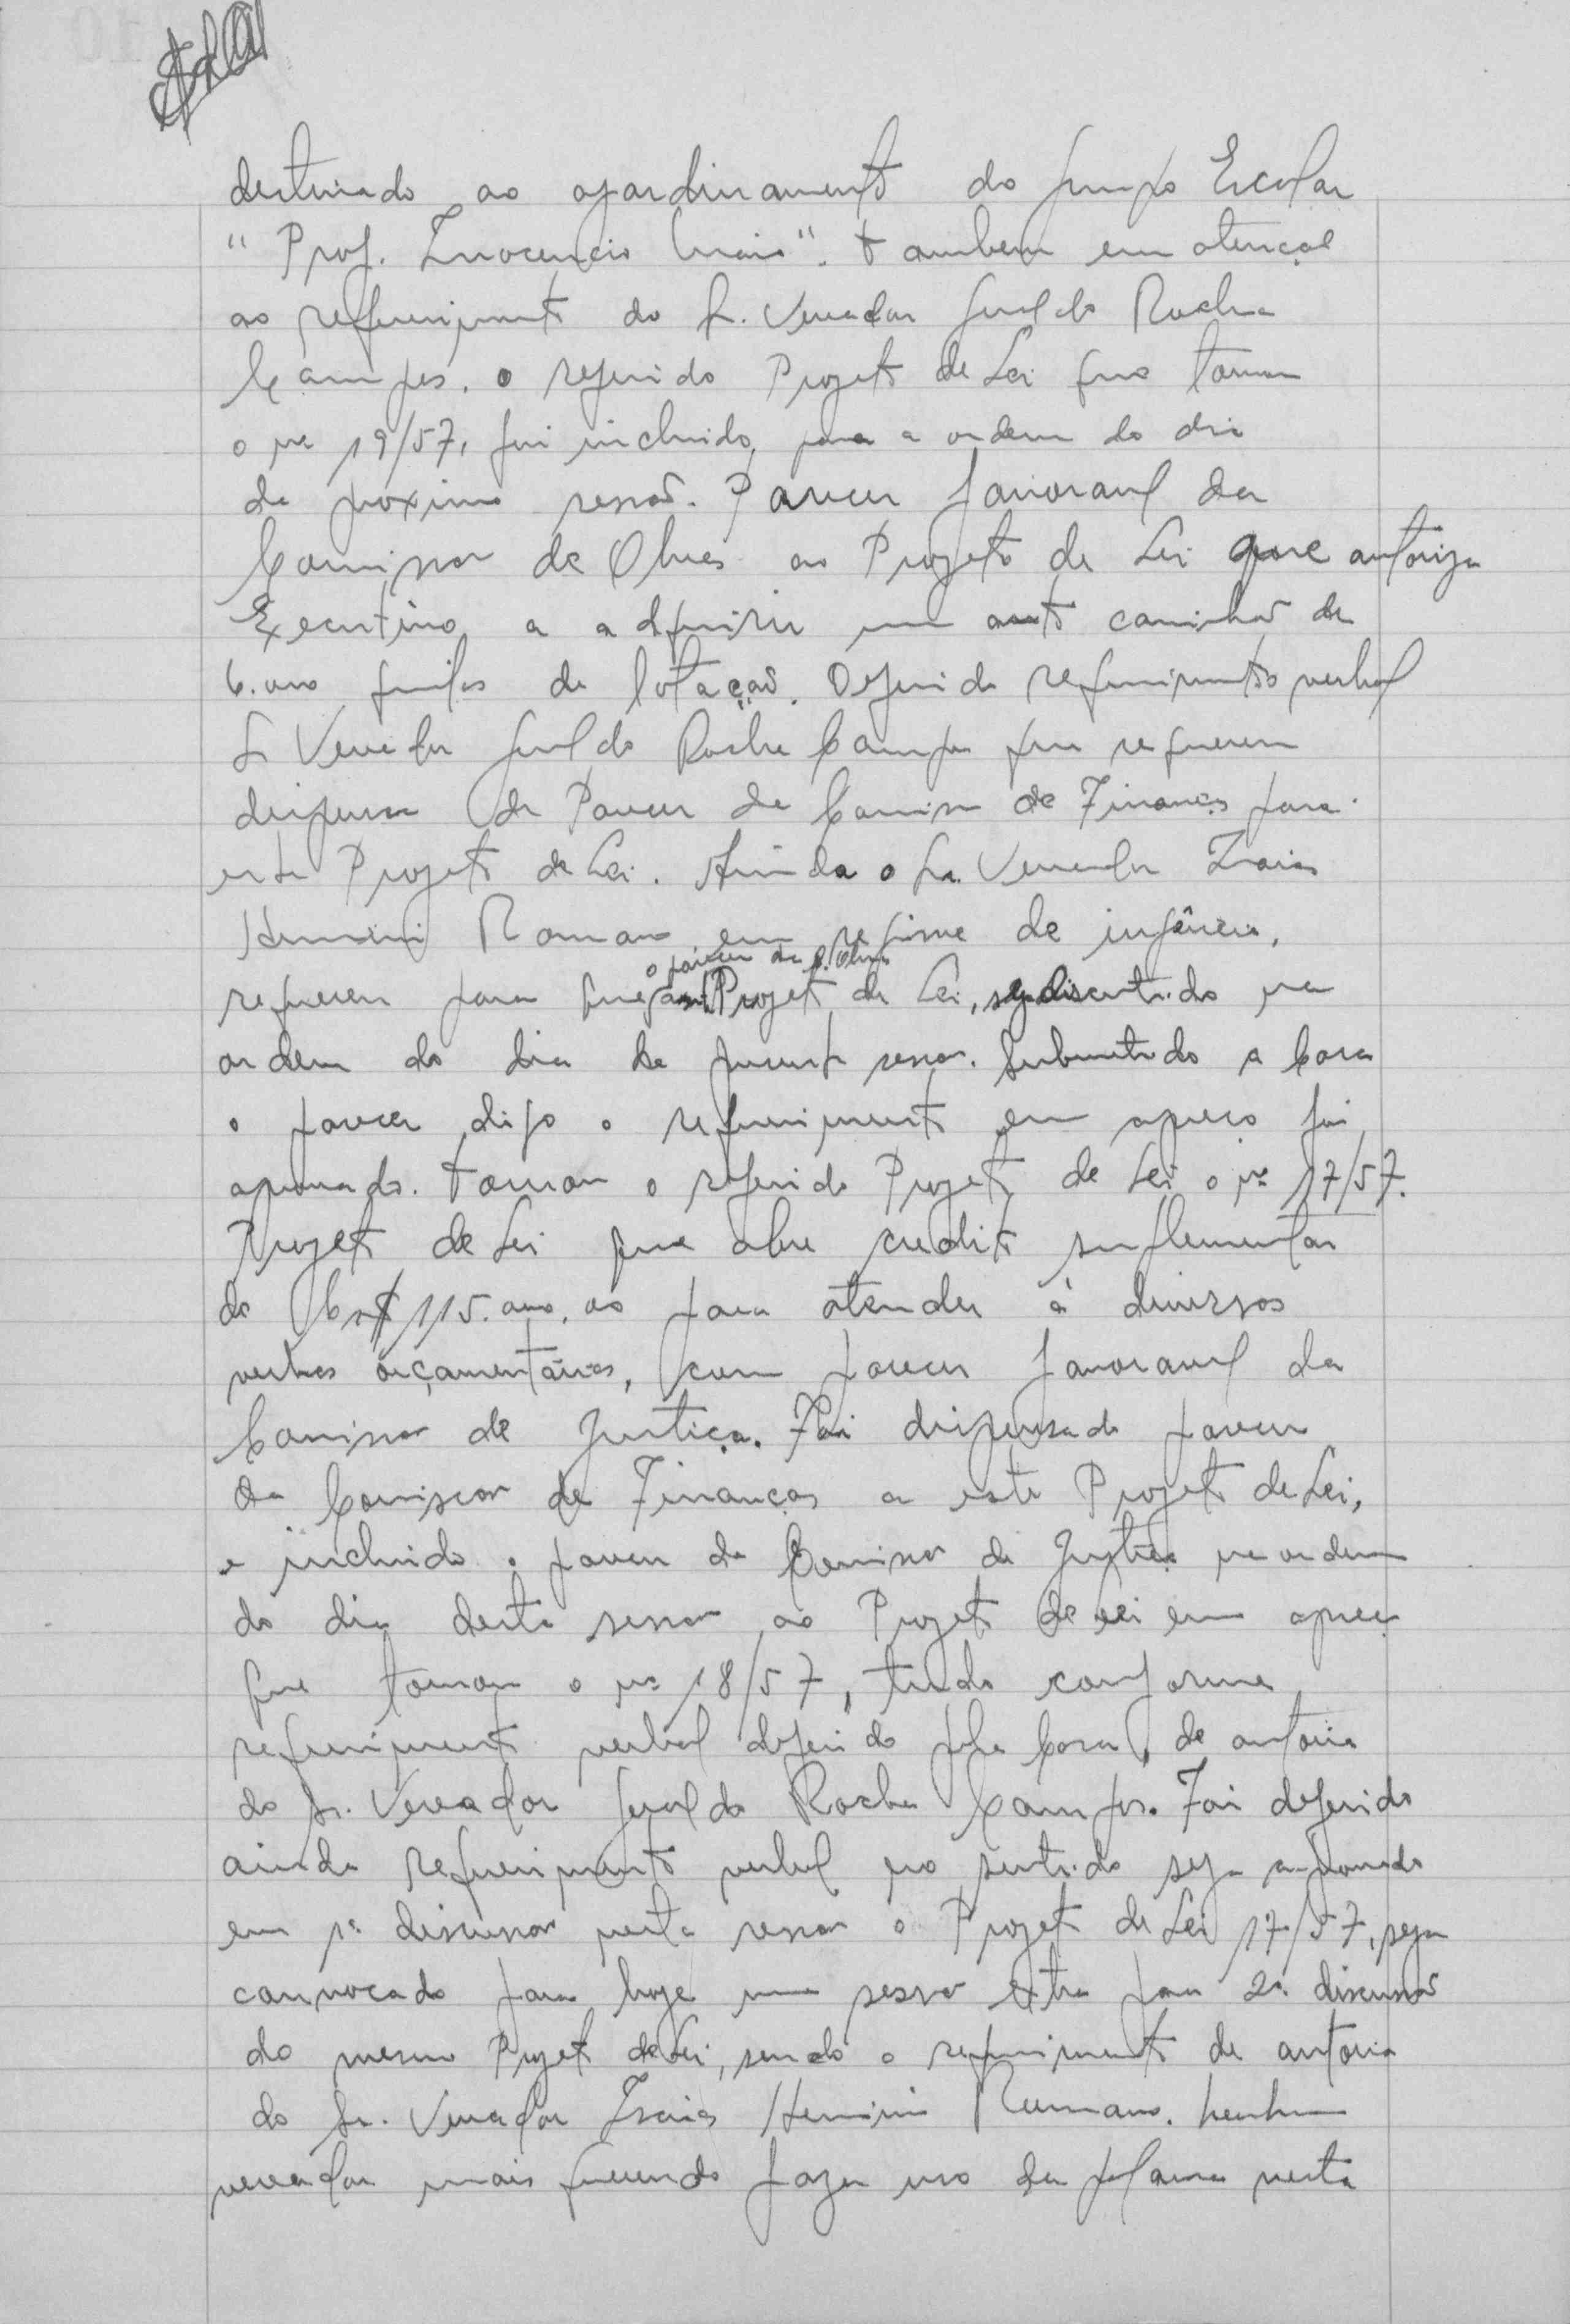 destinado ao ajardinamento do Grupo Escolar
" Prof. Inocencio Maia". tambem em atençaõ
ao requerimento do Sr. Vereador Geraldo Rocha
Campos. o referido Projeto de Lei que tomou
o nº 19/57, foi incluido, para a ordem do dia
da proxima sessaõ. Parecer favoravel da
Comissao de Obras ao Projeto de Lei que autoriza
Executivo a adquirir um auto caminhaõ de
6.000 quilos de lotaçaõ. Deferido requerimento verbal
Sr Vereador Geraldo Rocha Campos que requereu
dispensa de Parecer da Comissao de Finanças para
este Projeto de Lei. Ainda o Sr. Vereador Isaias
Hermini Romano em regime de urgência,
o parecer da C. Obras
requereu para que Projeto de Lei, seja discutido na
ordem do dia da presente sessao. Submetido a Casa
o parecer digo o requerimento em apreço foi
aprovado. Tomou o referido Projeto de Lei o nº 17/57.
Projeto de Lei que abre credito suplementar
de Cr$ 115.000,00 para atender à diversas
verbas orçamentárias, com parecer favoravel da
Comissao de Justiça. Foi dispensado parecer
da Comissao de Finanças a este Projeto de Lei,
e incluido o parecer da Comissao de Justiça na ordem
do dia desta sessao ao Projeto de Lei em apreço
que tomou o nº 18/57, tudo conforme
requerimento verbal deferido pela Casa, de autoria
do Sr. Vereador Geraldo Rocha Campos. Foi deferido
ainda requerimento verbal no sentido seja aprovado
em 1ª discussao nesta sessao o Projeto de Lei 17/57, seja
convocado para hoje uma sessao extra para 2ª discussaõ
do mesmo Projeto de Lei, sendo o requerimento de autoria
do Sr. Vereador Isaias Hermini Rumano. Nenhum
vereador mais querendo fazer uso da palavra nesta